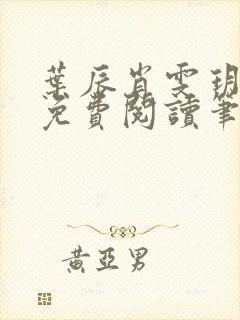 葉辰肖雯玥
免費閱讀筆
黃亞男